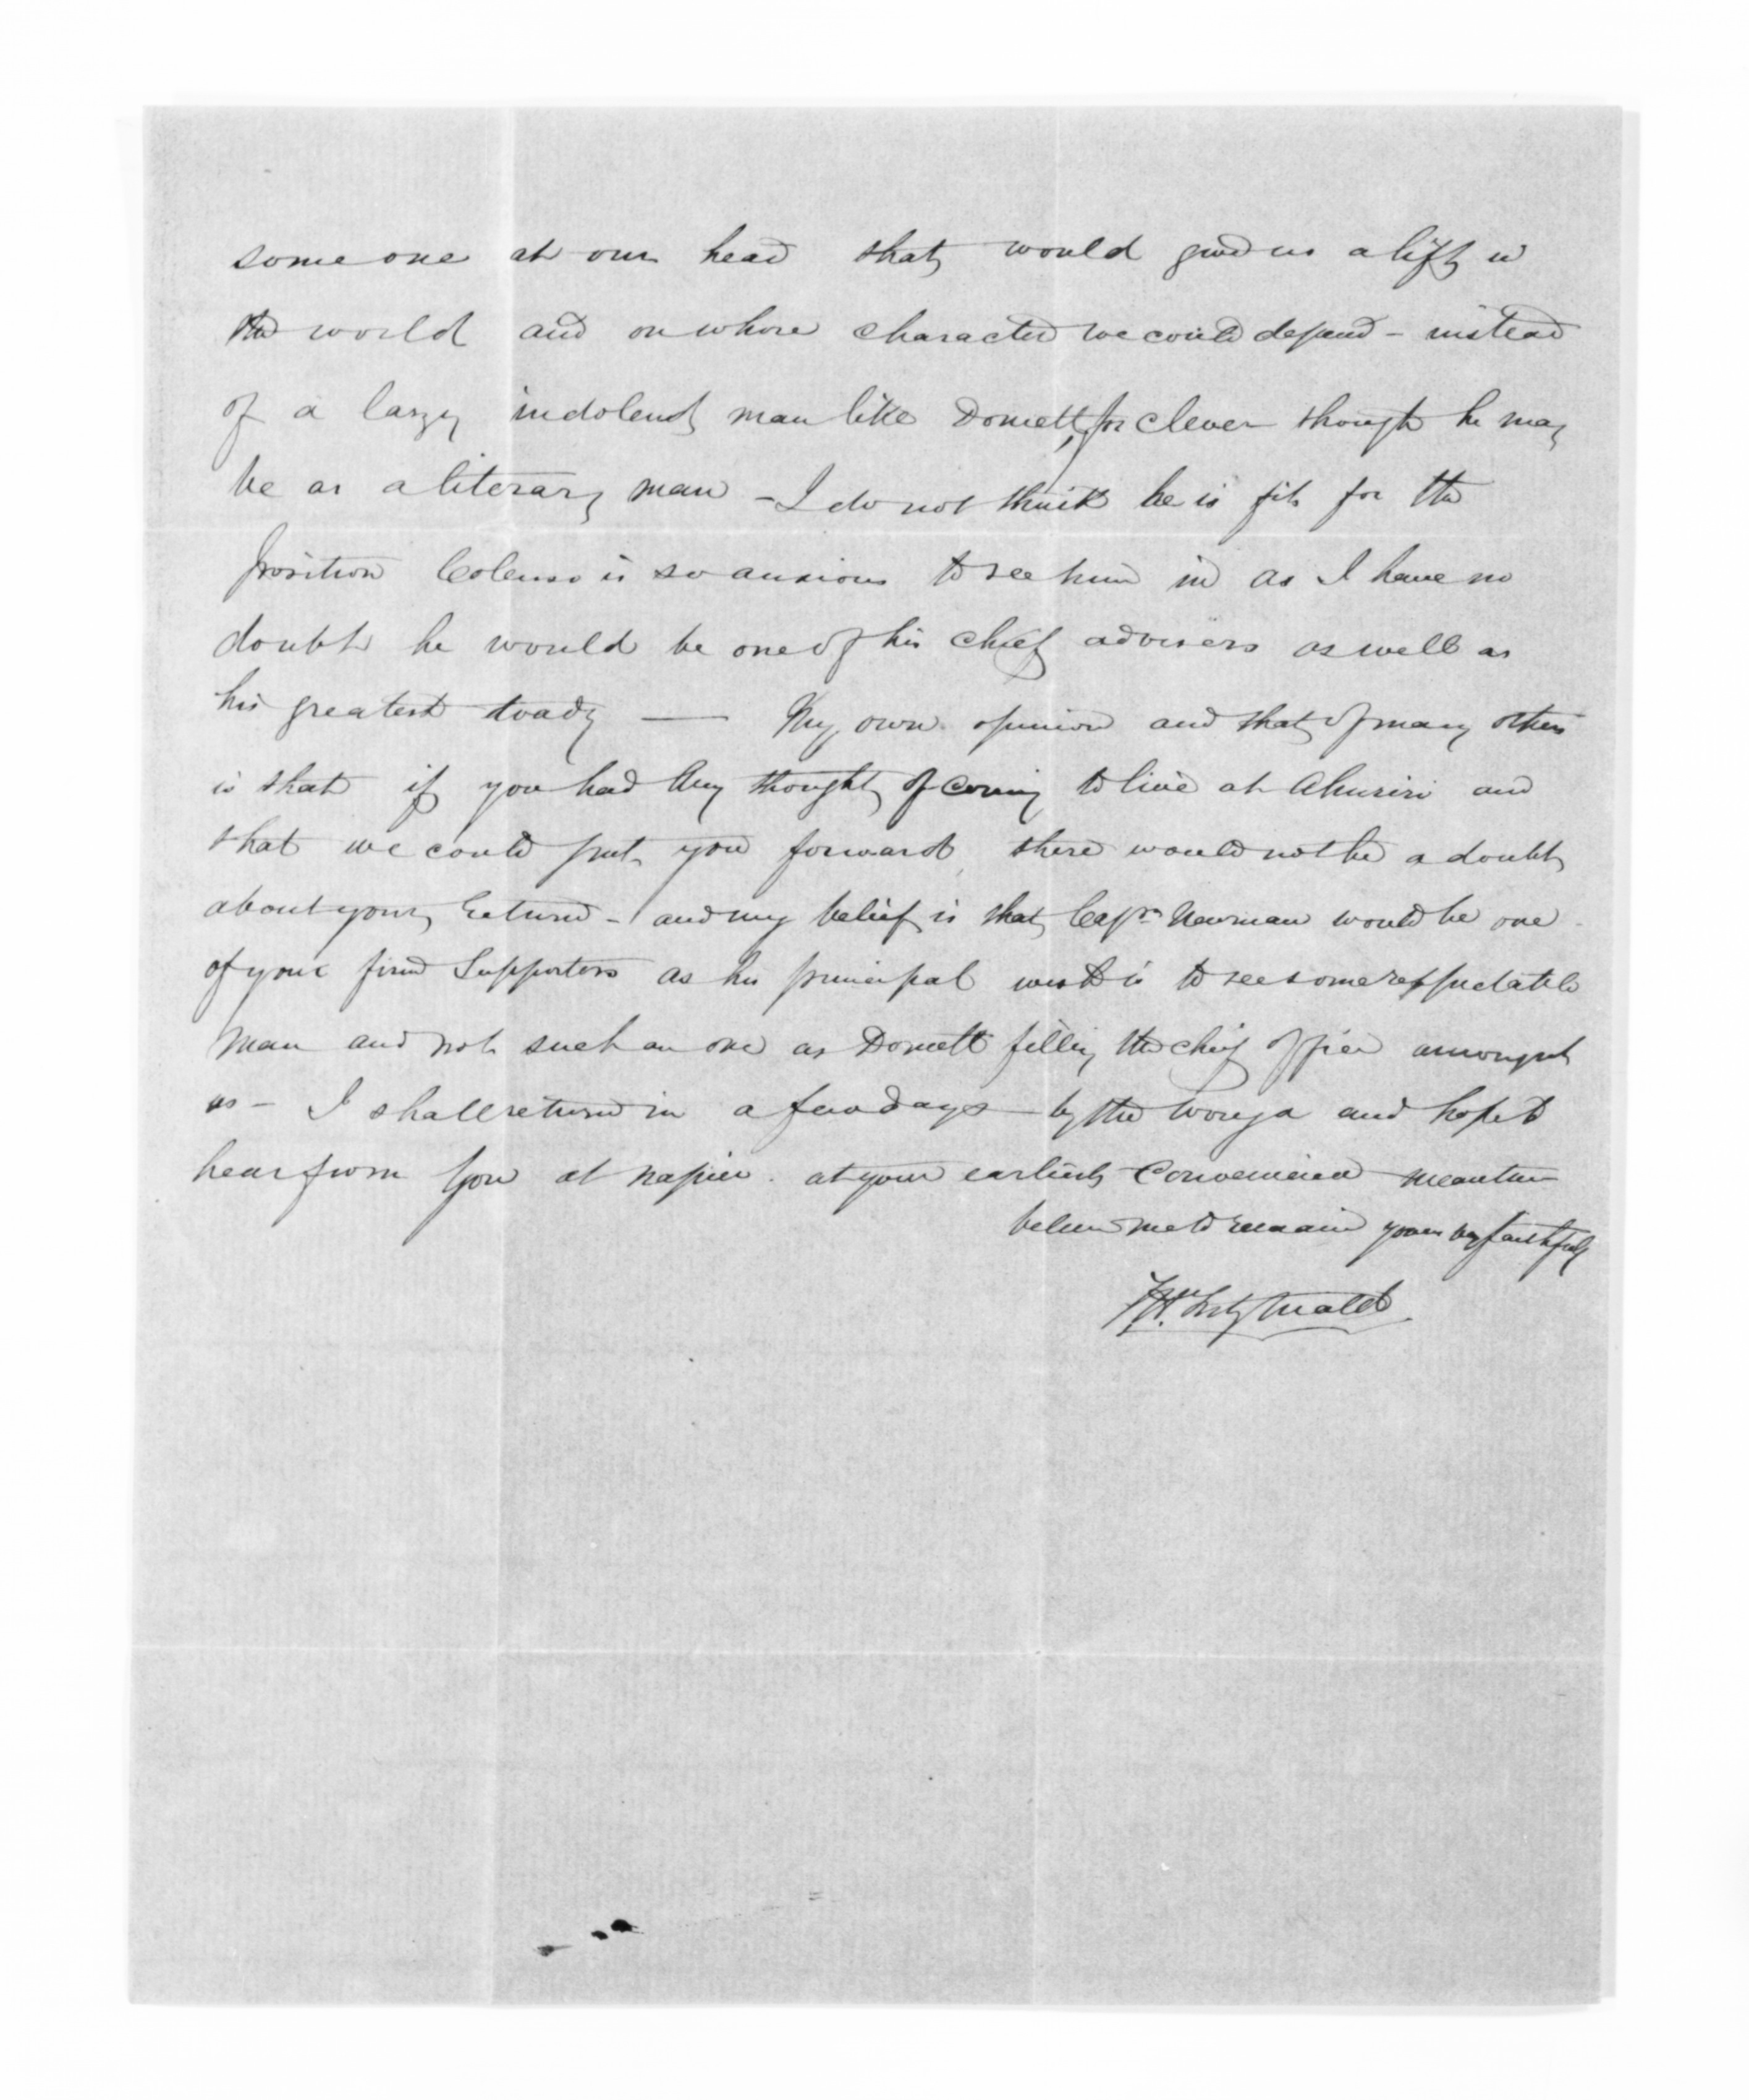 some one at our head that would give us a lift in
the world and on whose character we could depend - instead
of a lazy indolent man like Domett, for clever though he may
be as a literary man - I do not think he is fit for the
position Colenso is so anxious to see him in as I have no
doubt he would be one of his chief advisers as well as
his greatest toady — My own opinion and that of many others
is that if you had any thought of coming to live at Ahuriri and
that we could put you forward, there would not be a doubt
about your return - and my belief is that Capn Newman would be one
of your firm Supporters as his principal wish is to see some respectable
man and not such an one as Domett filling the chief office amongst
us - I shall return in a few days by the Wonga and hope to
hear from you at Napier. at your earliest Convenience meantime
believe me to remain yours very faithfully